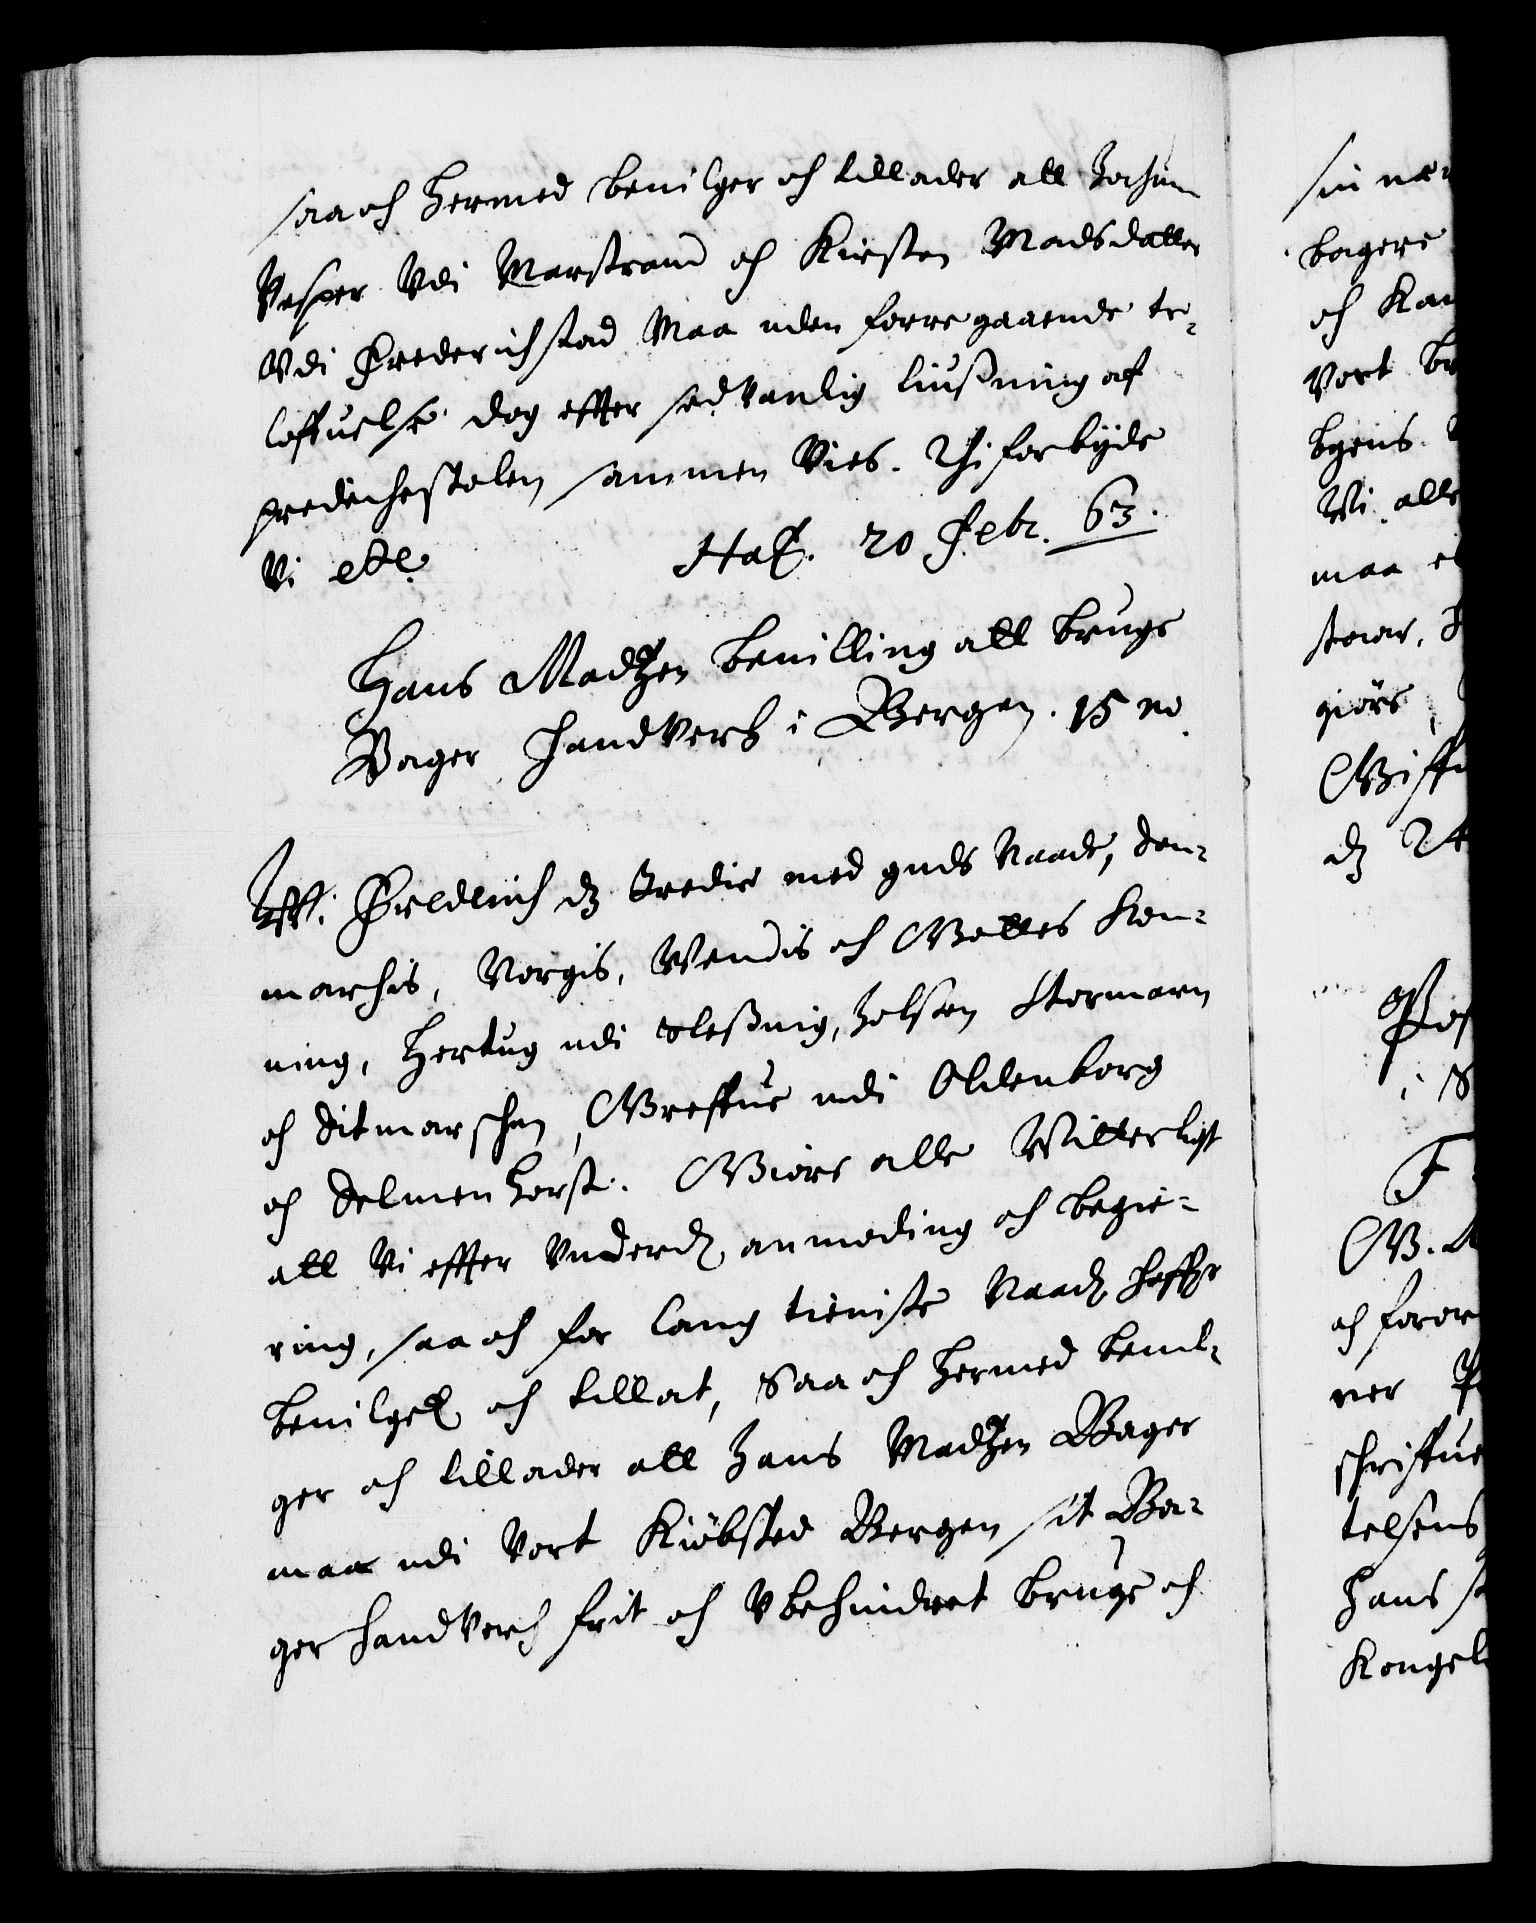 saa och hermed bevilger och tillader att Jochum
Vesper Vdi Marstrand och Kirsten Madsdatter
Vdi Frederichstad Maa uden forregaaende tro-
loffuelse dog effter sedvanlig liusning af
predichestolen sammen Vies. Thi forbyde
Vi etc. Haf. 20 Febr. 63.
Hans Madtzen bevilling att bruge
Bager handverk i Bergen. 15 no.
Wi Frederich dz tredie med guds Naade, dan-
marchis, Norgis, Wendis och Gottes kon-
ning, Hertug udi Slesvig, Holsten Stormarn
och Ditmarschen, Greffue udi Oldenborg
och Delmenhorst. Giøre alle Witterligt
att Vi effter Vnderd. anmoding och begie-
ring, saa och for lang tieniste Naadl. haffr
bevilget och tillat, Saa och hermed bevil-
ger och tillader att Hans Madtzen Bager
maa udi Vort Kiøbsted Bergen sit Ba-
ger handverch frit och Vbehindret bruge och
bagere
och
Vort
Vi alle
maa
giøre
dz
i S
och foror
ner
schriffue
telsens
hans
Kongel